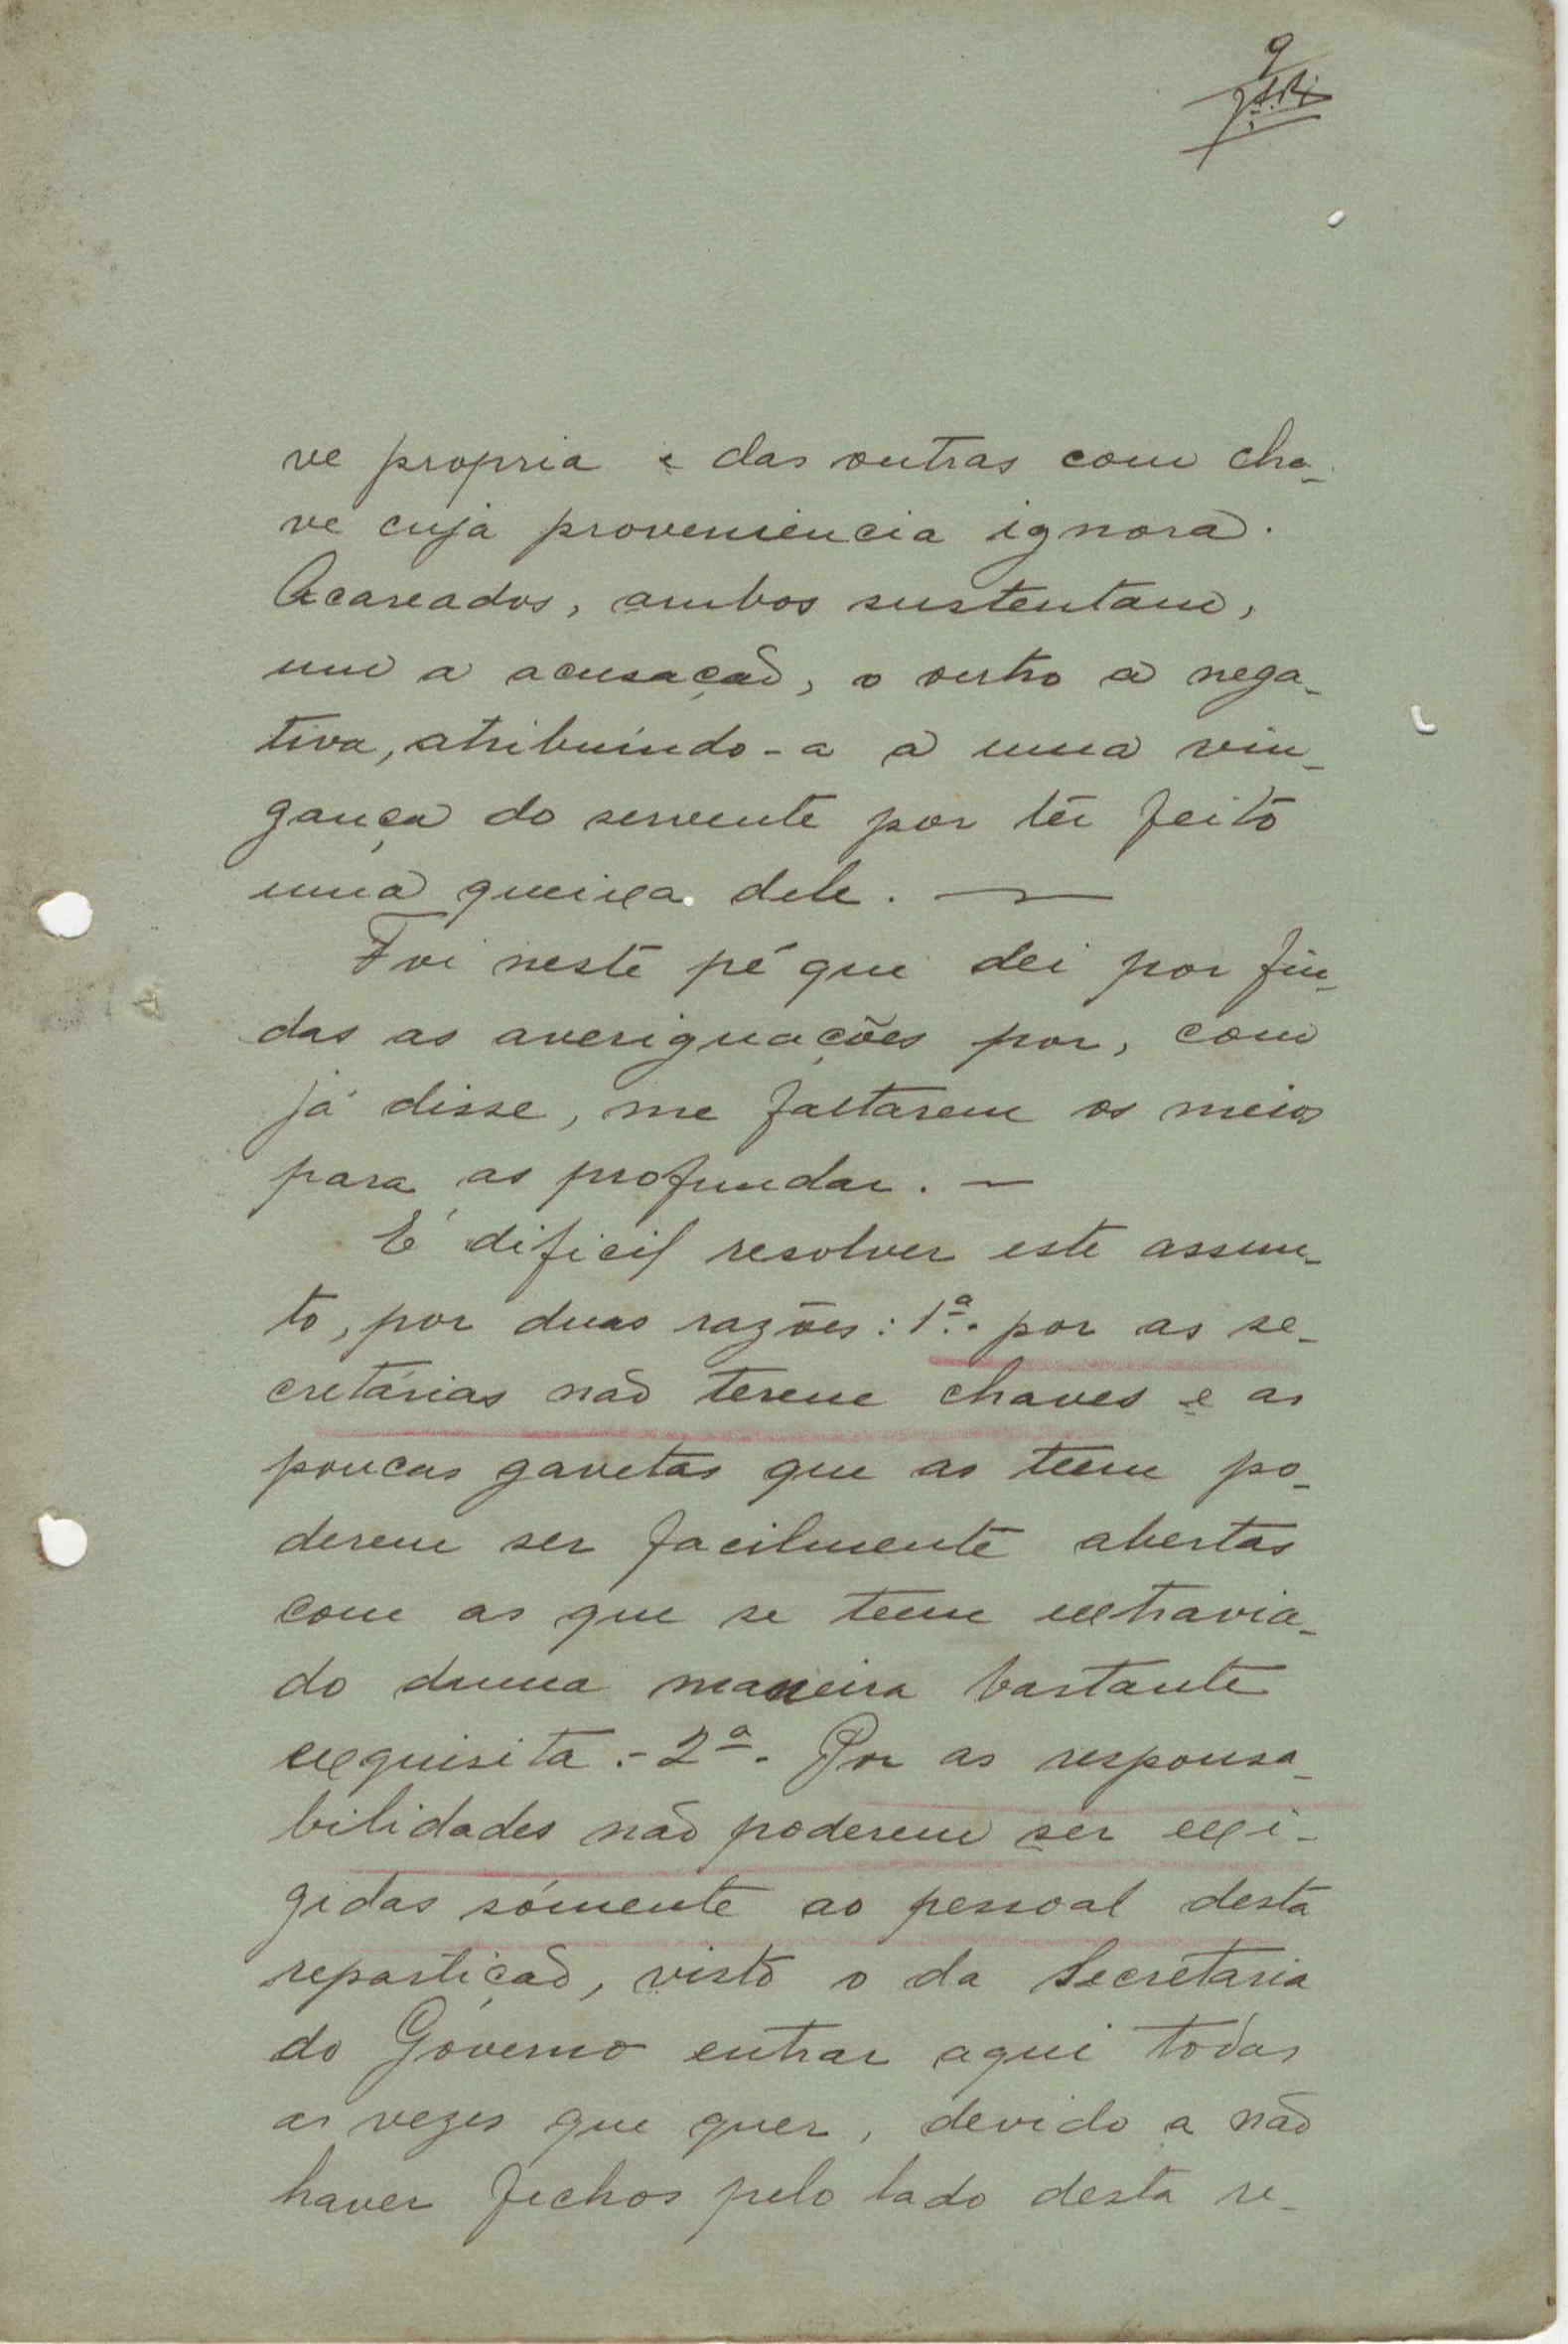 9
ve propria e das outras com cha-
ve cuja proveniencia ignora.
Acareados, ambos sustentam,
um a acusação, o outro a nega-
tiva, atribuindo-a a uma vin-
gança do servente por ter feito
uma queixa dele.
Foi neste pé que dei por fin-
das as averiguações por, com
já disse, me faltarem os meios
para as profundar.
É dificil resolver este assum-
to, por duas razões: 1ª. por as se-
cretárias não terem chaves e as
poucas gavetas que as teem po-
derem ser facilmente abertas
com as que se teem extravia-
do duma maneira bastante
exquisita. - 2ª. Por as responsa-
bilidades não poderem ser exi-
gidas sómente ao pessoal desta
repartição, visto o da Secretaria
do Góverno entrar aqui todas
as vezes que quer, devido a não
haver fechos pelo lado desta re-